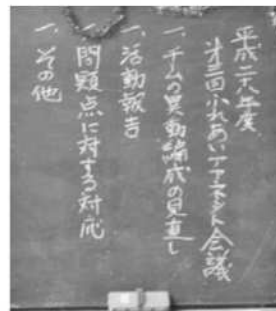 平成二八年度
第二回ふれあいケアネット会議
一、チームの異動編成の見直し
一、活動報告
一、問題点に対する対応
一、その他